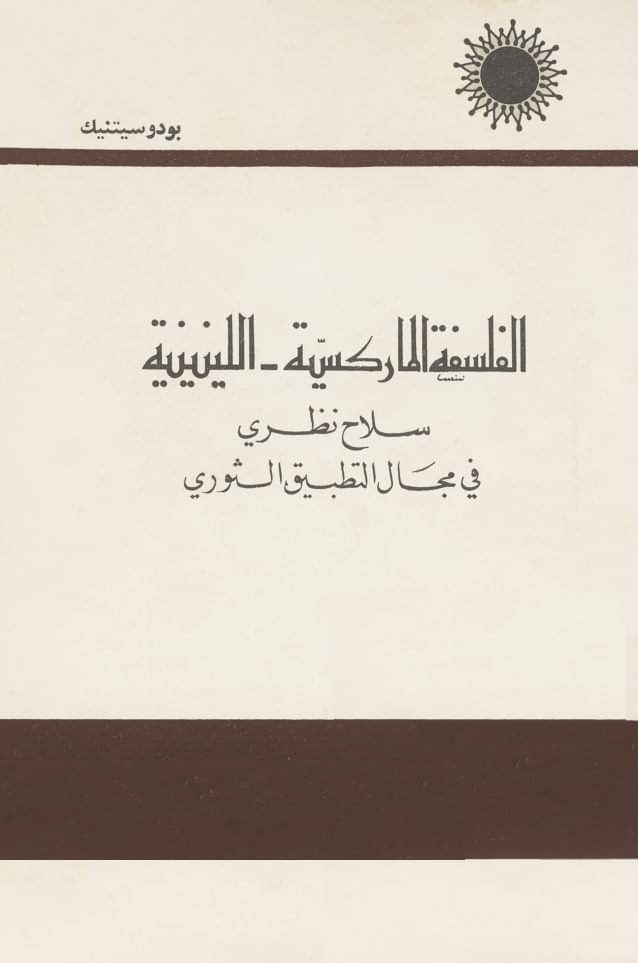 بودوسيتنيك
الفلسفة الماركسيّة - اللينينية
سلاح نظري
في مجَال التطبيق الثوري